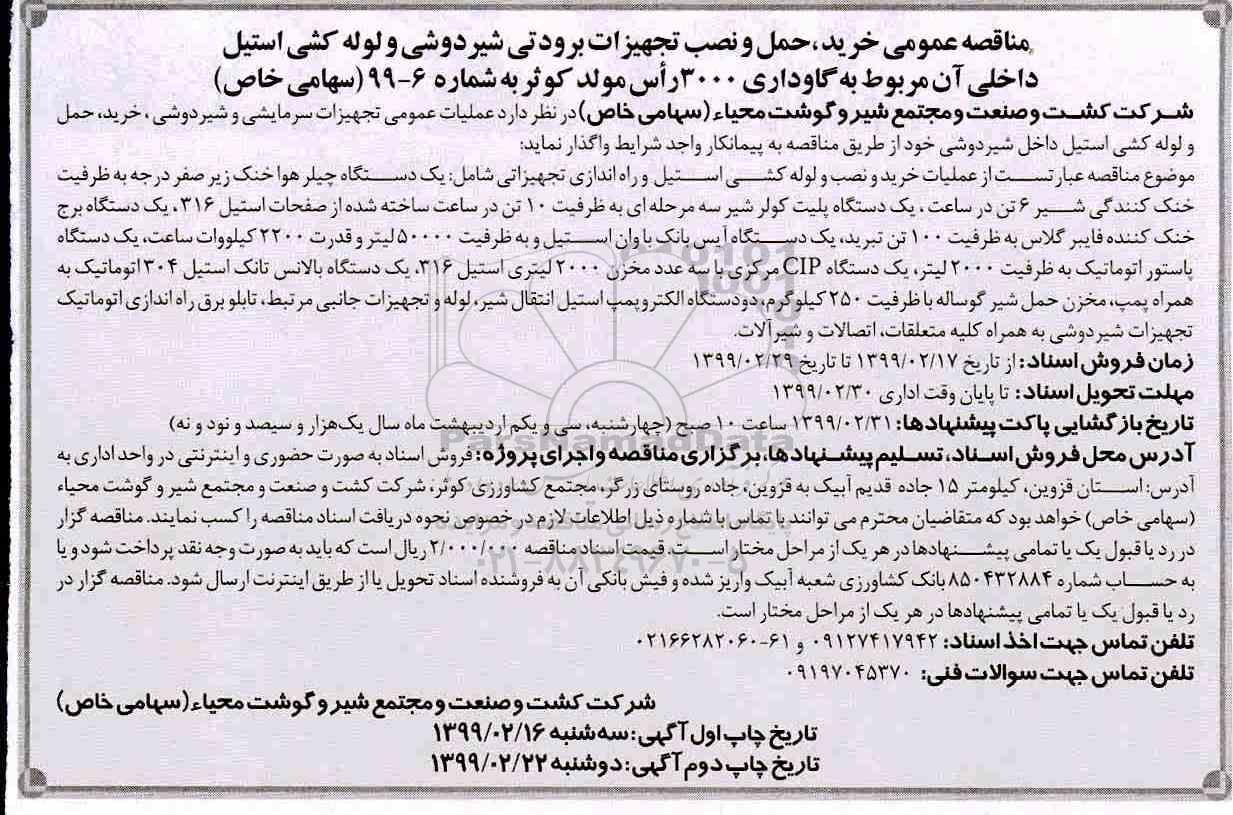 مناقصه عمومی خرید، حمل و نصب تجهیزات برودتی شیردوشی و لوله کشی استیل
داخلی آن مربوط به گاوداری ۳۰۰۰ رأس مولد کوثر به شماره ۶-۹۹ (سهامی خاص)
شرکت کشت و صنعت و مجتمع شیر و گوشت محیاء (سهامی خاص) در نظر دارد عملیات عمومی تجهیزات سرمایشی و شیردوشی، خرید، حمل
و لوله کشی استیل داخل شیردوشی خود از طریق مناقصه به پیمانکار واجد شرایط واگذار نماید:
موضوع مناقصه عبارتست از عملیات خرید و نصب و لوله کشی استیل و راه اندازی تجهیزاتی شامل: یک دستگاه چیلر هوا خنک زیر صفر درجه به ظرفیت
خنک کنندگی شیر ۶ تن در ساعت، یک دستگاه پلیت کولر شیر سه مرحله ای به ظرفیت ۱۰ تن در ساعت ساخته شده از صفحات استیل ۳۱۶، یک دستگاه برج
خنک کننده فایبر گلاس به ظرفیت ۱۰۰ تن تبرید، یک دستگاه آیس بانک با وان استیل و به ظرفیت ۵۰۰۰۰ لیتر و قدرت ۲۲۰۰ کیلووات ساعت، یک دستگاه
پاستور اتوماتیک به ظرفیت ۲۰۰۰ لیتر، یک دستگاه CIP مرکزی با سه عدد مخزن ۲۰۰۰ لیتری استیل ۳۱۶، یک دستگاه بالانس تانک استیل ۳۰۴ اتوماتیک به
همراه پمپ، مخزن حمل شیر گوساله با ظرفیت ۲۵۰ کیلوگرم، دو دستگاه الکتروپمپ استیل انتقال شیر، لوله و تجهیزات جانبی مرتبط، تابلو برق راه اندازی اتوماتیک
تجهیزات شیردوشی به همراه کلیه متعلقات، اتصالات و شیرآلات.
زمان فروش اسناد: از تاریخ ۱۳۹۹/۰۲/۱۷ تا تاریخ ۱۳۹۹/۰۲/۲۹
مهلت تحویل اسناد: تا پایان وقت اداری ۱۳۹۹/۰۲/۳۰
تاریخ بازگشایی پاکت پیشنهادها: ۱۳۹۹/۰۲/۳۱ ساعت ۱۰ صبح (چهارشنبه، سی و یکم اردیبهشت ماه سال یک‌هزار و سیصد و نود و نه)
آدرس محل فروش اسناد، تسلیم پیشنهادها، برگزاری مناقصه و اجرای پروژه: فروش اسناد به صورت حضوری و اینترنتی در واحد اداری به
آدرس: استان قزوین، کیلومتر ۱۵ جاده قدیم آبیک به قزوین، جاده روستای زرگر، مجتمع کشاورزی کوثر، شرکت کشت و صنعت و مجتمع شیر و گوشت محیاء
(سهامی خاص) خواهد بود که متقاضیان محترم می توانند با تماس با شماره ذیل اطلاعات لازم در خصوص نحوه دریافت اسناد مناقصه را کسب نمایند. مناقصه گزار
در رد یا قبول یک یا تمامی پیشنهادها در هر یک از مراحل مختار است. قیمت اسناد مناقصه ۲/۰۰۰/۰۰۰ ریال است که باید به صورت وجه نقد پرداخت شود و یا
به حساب شماره ۸۵۰۴۳۲۸۸۴ بانک کشاورزی شعبه آبیک واریز شده و فیش بانکی آن به فروشنده اسناد تحویل یا از طریق اینترنت ارسال شود. مناقصه گزار در
رد یا قبول یک یا تمامی پیشنهادها در هر یک از مراحل مختار است.
تلفن تماس جهت اخذ اسناد: ۰۹۱۲۷۴۱۷۹۴۲ و ۶۱-۰۲۱۶۶۲۸۲۰۶۰
تلفن تماس جهت سوالات فنی: ۰۹۱۹۷۰۴۵۳۷۰
شرکت کشت و صنعت و مجتمع شیر و گوشت محیاء (سهامی خاص)
تاریخ چاپ اول آگهی: سه شنبه ۱۳۹۹/۰۲/۱۶
تاریخ چاپ دوم آگهی: دوشنبه ۱۳۹۹/۰۲/۲۲
ParsNamadData
۰۲۱-۸۸۳۴۹۶۷۰-۵